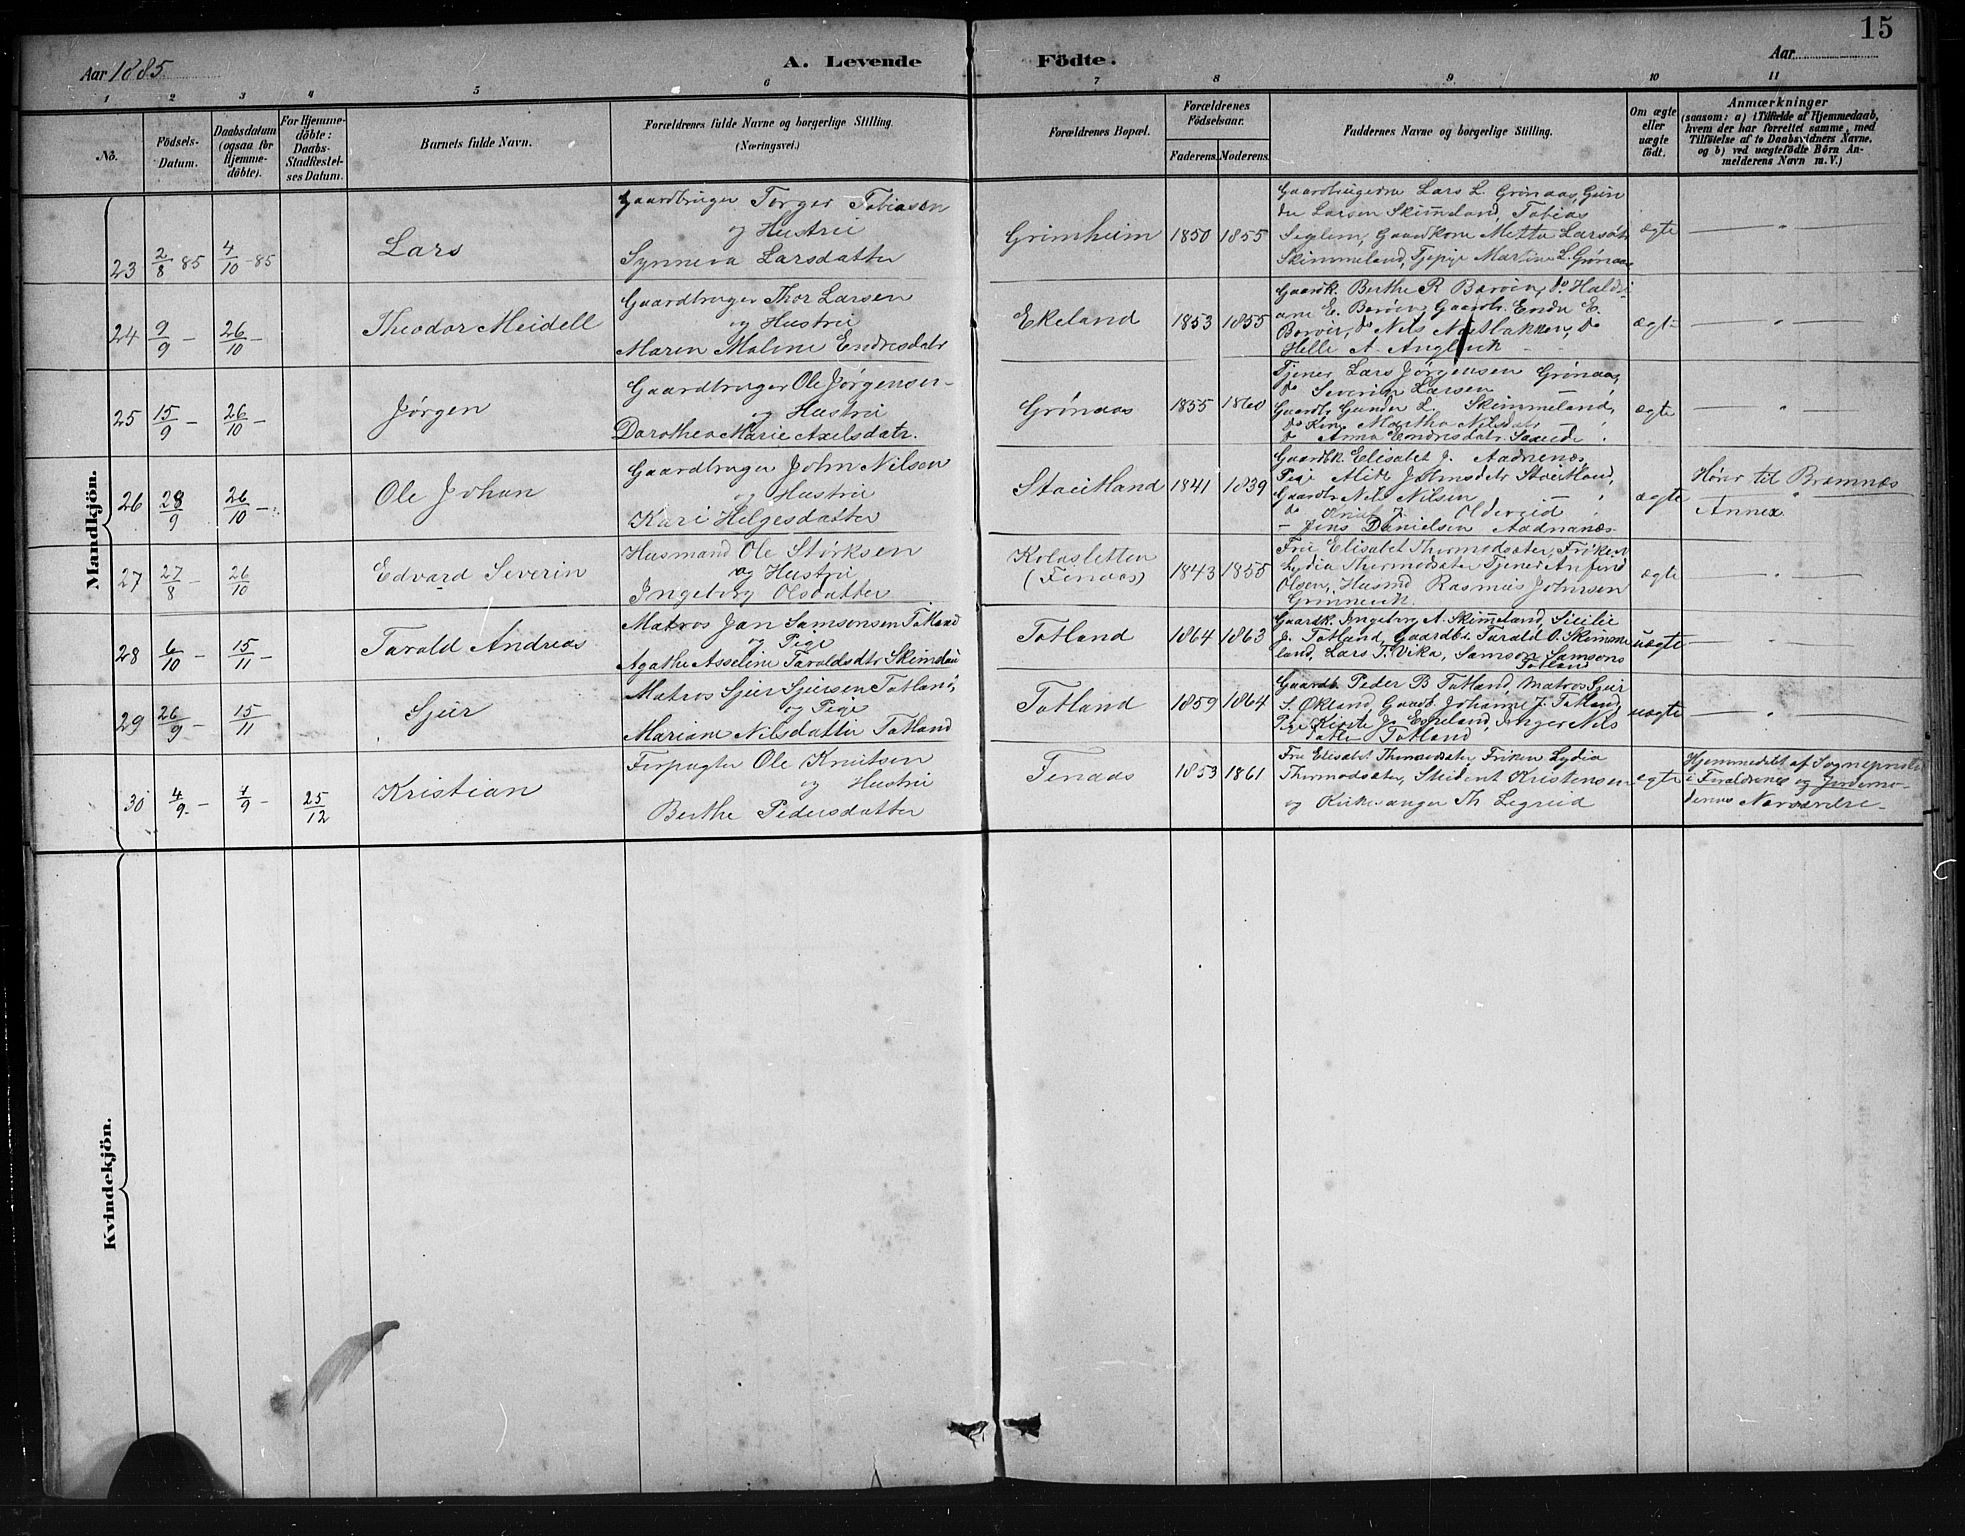 15
Aar 1885
A. Levende Födte.
Aar
1 2 3 4 5 6 7 8 9 10 11
No.
Födsels-
Datum.
Daabsdatum
(ogsaa for
Hjemme-
döbte).
For Hjemme-
döbte:
Daabs-
Stadfæstel-
ses Datum.
Barnets fulde Navn.
Forældrenes fulde Navne og borgerlige Stilling.
(Næringsvei.)
Forældrenes Bopæl.
Forældrenes
Födselsaar.
Faderens. Moderens.
Faddernes Navne og borgerlige Stilling.
Om ægte
eller
uægte
födt.
Anmærkninger
(saasom: a) i Tilfælde af Hjemmedaab,
hvem der har forrettet samme, med
Tilföielse af to Daabsvidners Navne,
og b) ved uægtefödte Börn An-
melderens Navn m. V.)
Mandkjön.
23 2/8 85 4/10 -85 Lars
Gaardbruger Tørger Tobiasen
og Hustru
Synneva Larsdatter
Grimheim 1850 1855
Gaardbrugerne Lars L. Grønaas, Gun
der Larsen Skimmeland, Tobias
Seglem, Gaardkone Mette Larsdtr
Skimmeland, Martine L. Grønaas
ægte — " —
24 9/9 - 26/10 - Theodor Meidell
Gaardbruger Thor Larsen
og Hustru
Maren Maline Endresdatr
Ekeland 1853 1855
Gaardk. Berthe R Barøen, do Haldi-
ane E. Barøen, Gaardbr. Endre E.
Barøen, do Nils do
Helle A.
ægte — " —
25 15/9 - 26/10 - Jørgen
Gaardbruger Ole Jørgensen
og Hustru
Dorothea Marie Axelsdatr.
Grønaas 1855 1860
Tjener Lars Jørgensen Grønaas,
do Severin Larsen —
Gaardbr Gunder L. Skimmeland,
do Kone Martha Nilsdatr —
do Anna Endresdatr
ægte — " —
26 28/9 26/10 - Ole Johan
Gaardbruger John Nilsen
og Hustru
Kari Helgesdatter
Stautland 1841 1839
Gaardk. Elisabet J. Aadnenæs
Pige Alite Johnsdatr Stautland,
Gaardbr Nils Nilsen —
do J. Oldereid
— Jens Danielsen Aadnanæs
ægte
Hører til Bremnæs
Annex
27 27/8 - 26/10 Edvard Severin
Husmand Ole Størksen
og Hustru
Ingeborg Olsdatter
Kolasletten
(Fenaas)
1843 1855
Fru Elisabet Thormodsæter, Frøken
Lydia Thormodsæter Tjener Anfind
Olsen, Husmd Rasmus Johnsen
Grinnevik.
ægte — " —
28 6/10 - 15/11 - Tarald Andreas
Matros Jan Samsonsen Totland
og Pige
Agathe Asseline Taraldsdtr Skimeland
Totland 1864 1863
Gaardk. Ingeborg A. Skimmeland, Sicilie
J. Totland, Gaardbr. Tarald O. Skimme
land, Lars T. Vika, Samson Samsons
Totland
uægte — " —
29 26/9 - 15/11 Sjur
Matros Sjur Sjursen Totland,
og Pige
Mariane Nilsdatter Totland
Totland 1859 1864
Gaardb. Peder B Totland, Matros Sjur
S. Økland, Gaardk. Johanne J. Totland,
Pige Kirste J. Espeland, Inger Nils
datter Totland
uægte — " —
30 4/9 - 4/9 - 25/12 Kristian
Forpagter Ole Knutsen
og Hustru
Berthe Pedersdatter
Fenaas 1853 1861
Fru Elisabet Thormodsæter, Frøken Lydia
Thormodsæter, Student Kristensen
og Kirkesanger Th. Legreid
ægte
Hjemmedøbt af Sogneprest
i Forældrenes og Jordemo-
derens Nærværelse
Kvindekjön.